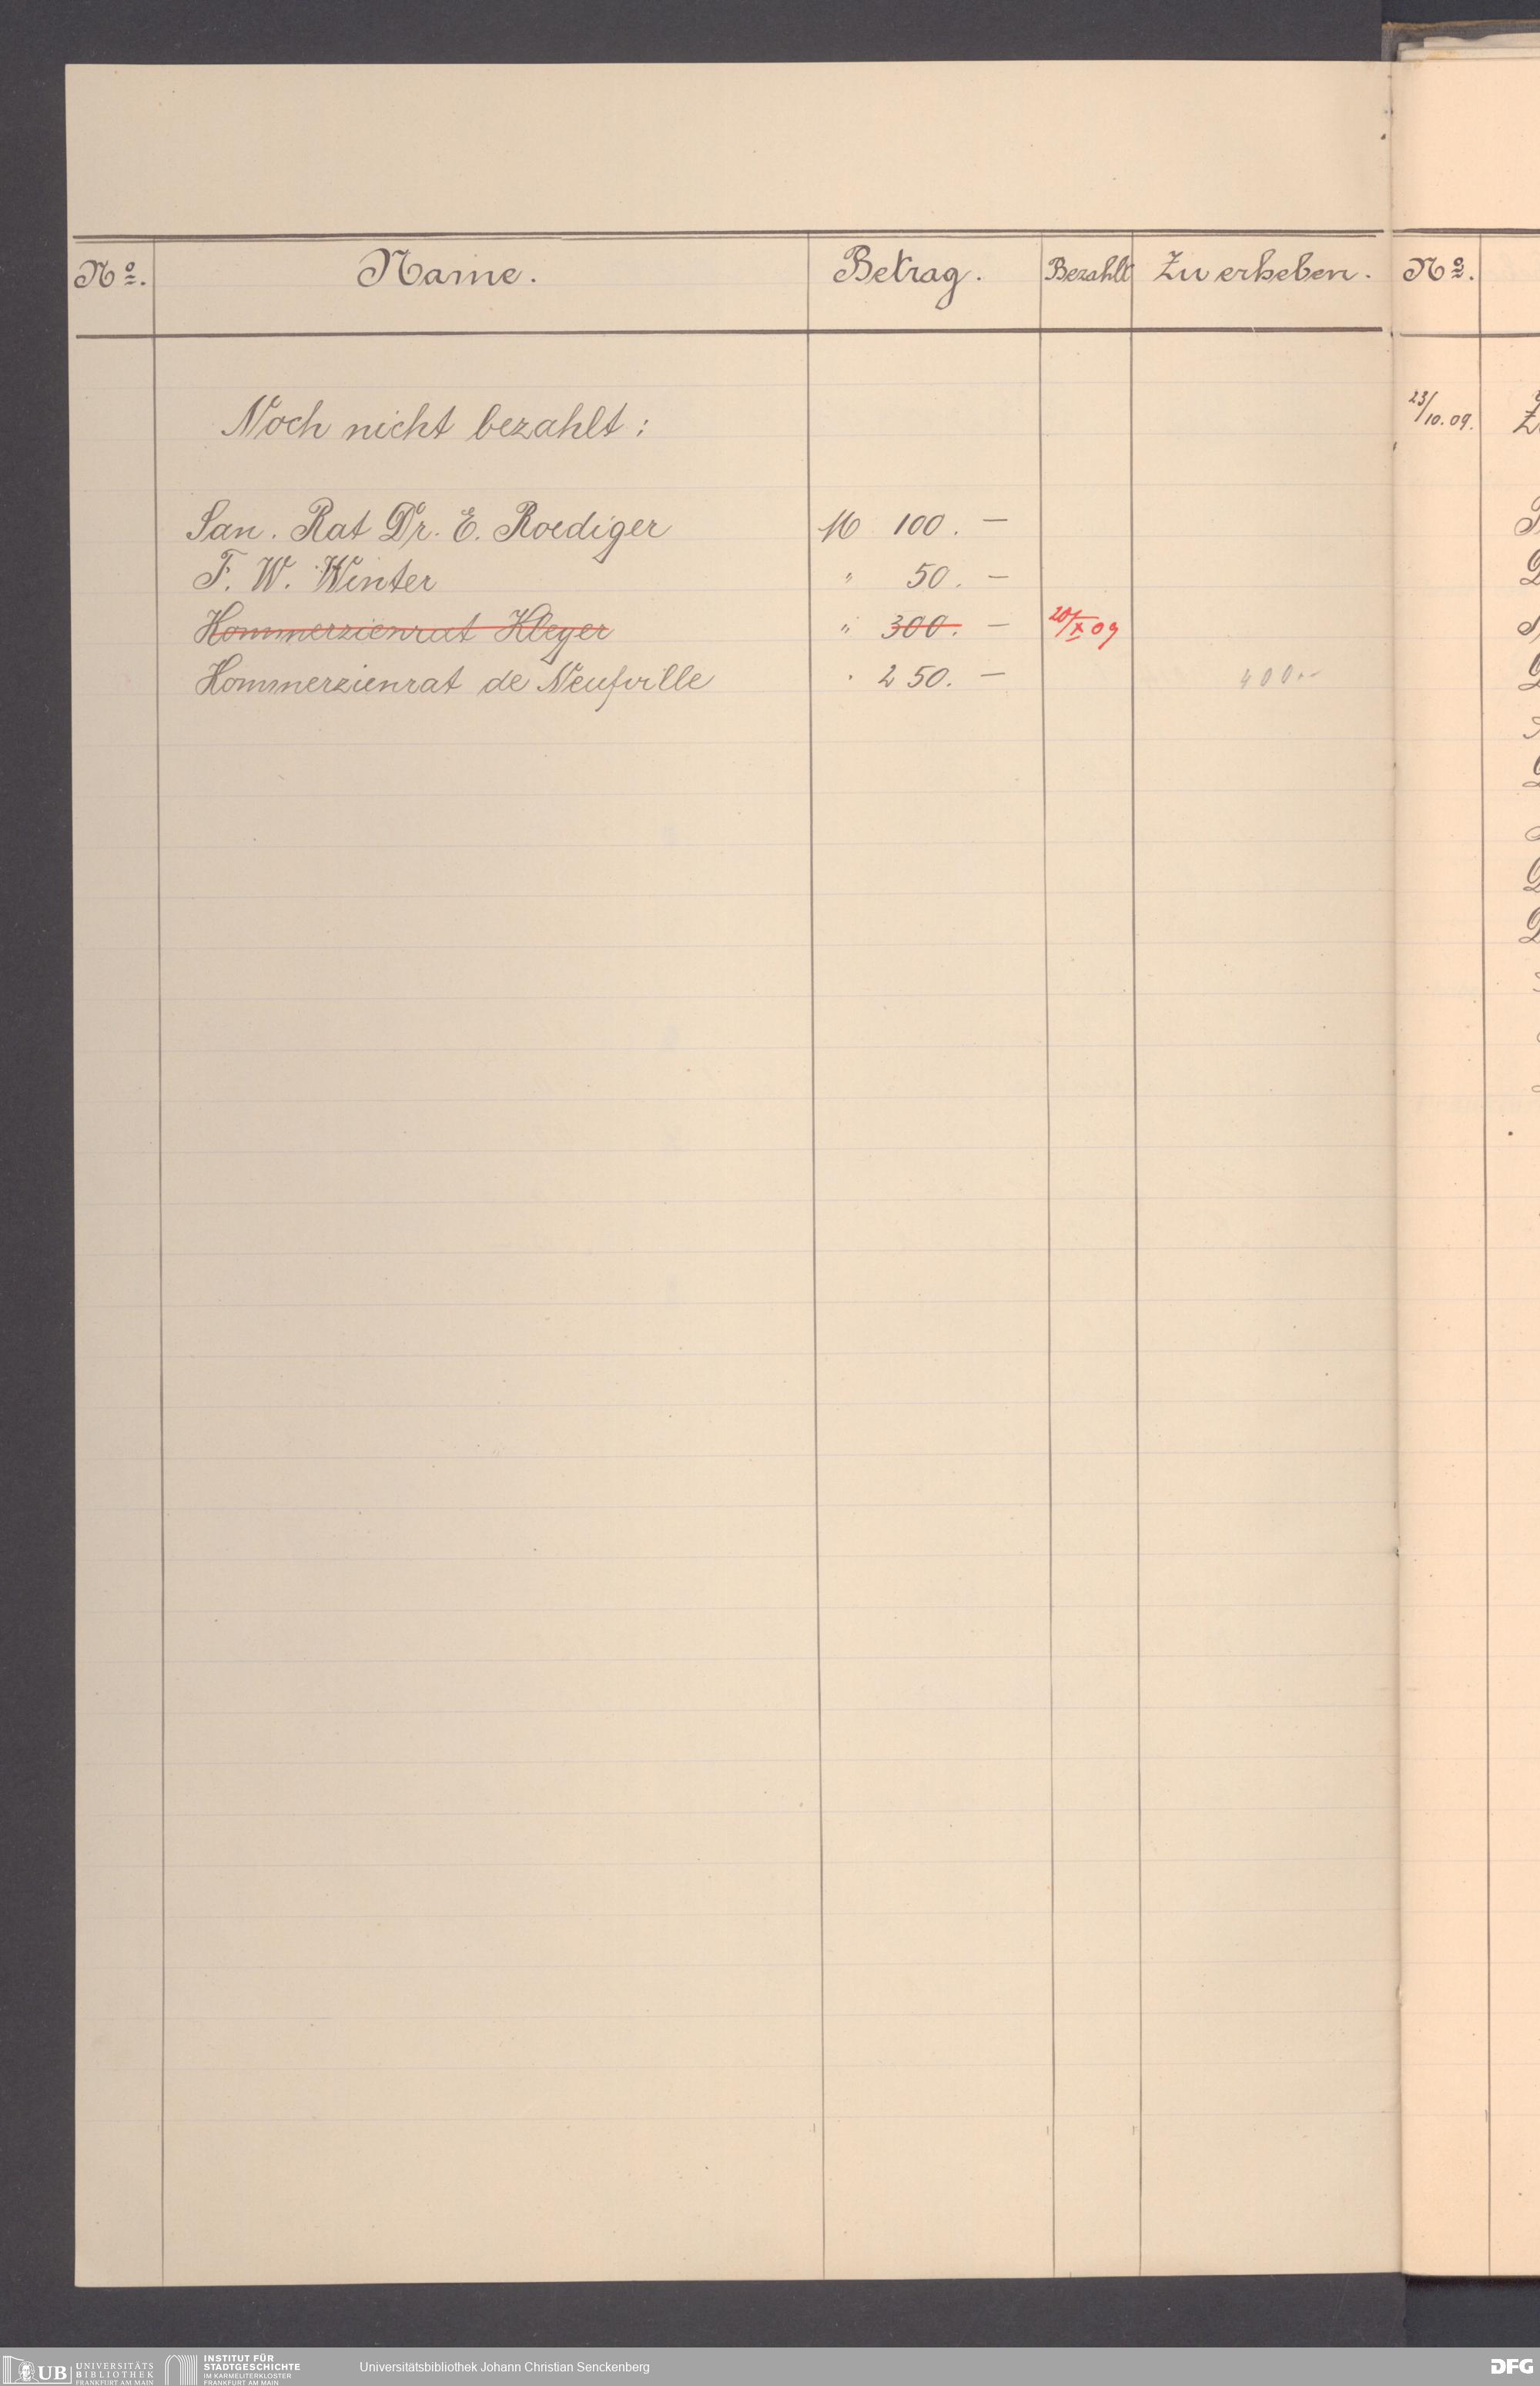 No. Name. Betrag. Bezahlt Zu erheben. No.
Noch nicht bezahlt:
23/10.09.
San. Rat Dr. E. Roediger M 100. —
F. W. Winter " 50. —
Kommerzienrat Kleyer " 300. — 20/X 09
Kommerzienrat de Neufville " 250. — 400.–
UB UNIVERSITÄTS BIBLIOTHEK FRANKFURT AM MAIN
INSTITUT FÜR STADTGESCHICHTE IM KARMELITERKLOSTER FRANKFURT AM MAIN
Universitätsbibliothek Johann Christian Senckenberg
DFG